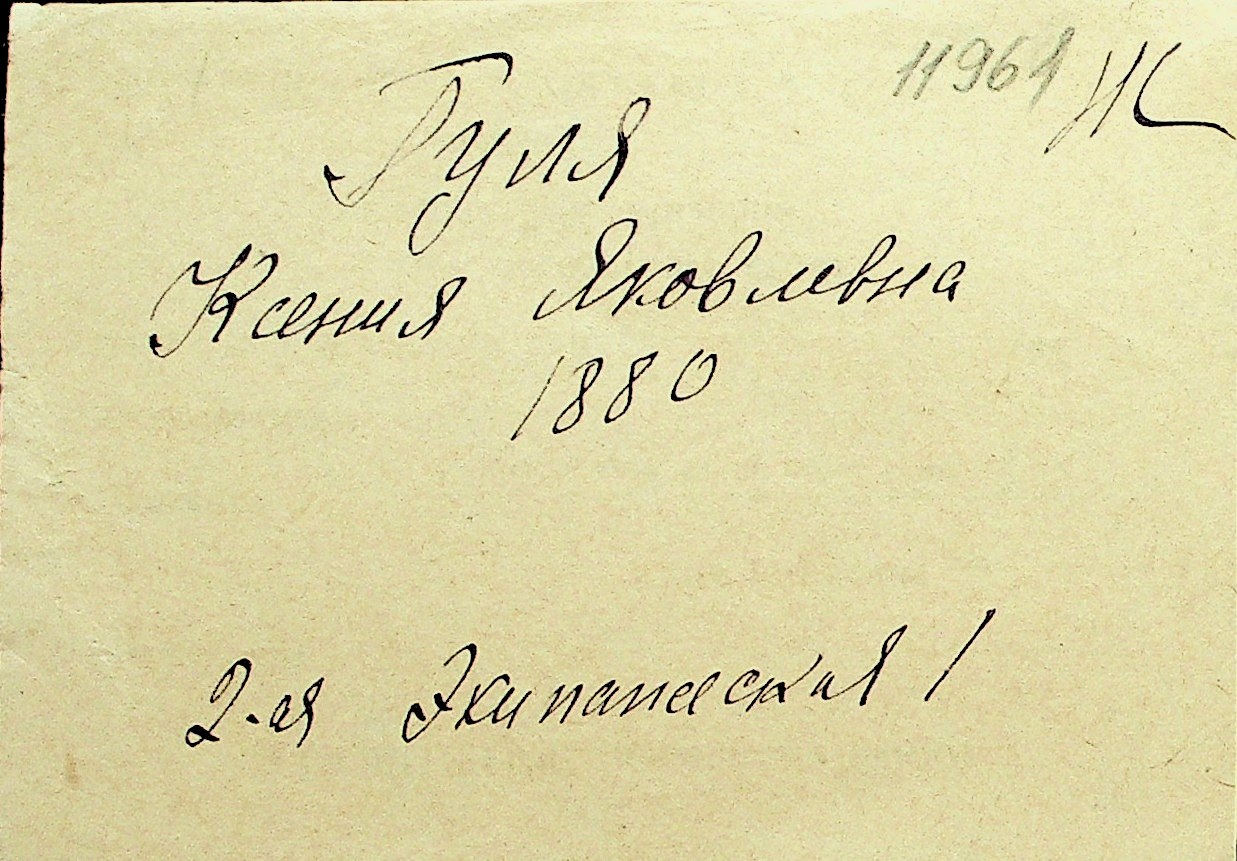 11961 Ж
Гуля
Ксения Яковлевна
1880
2-ая 1